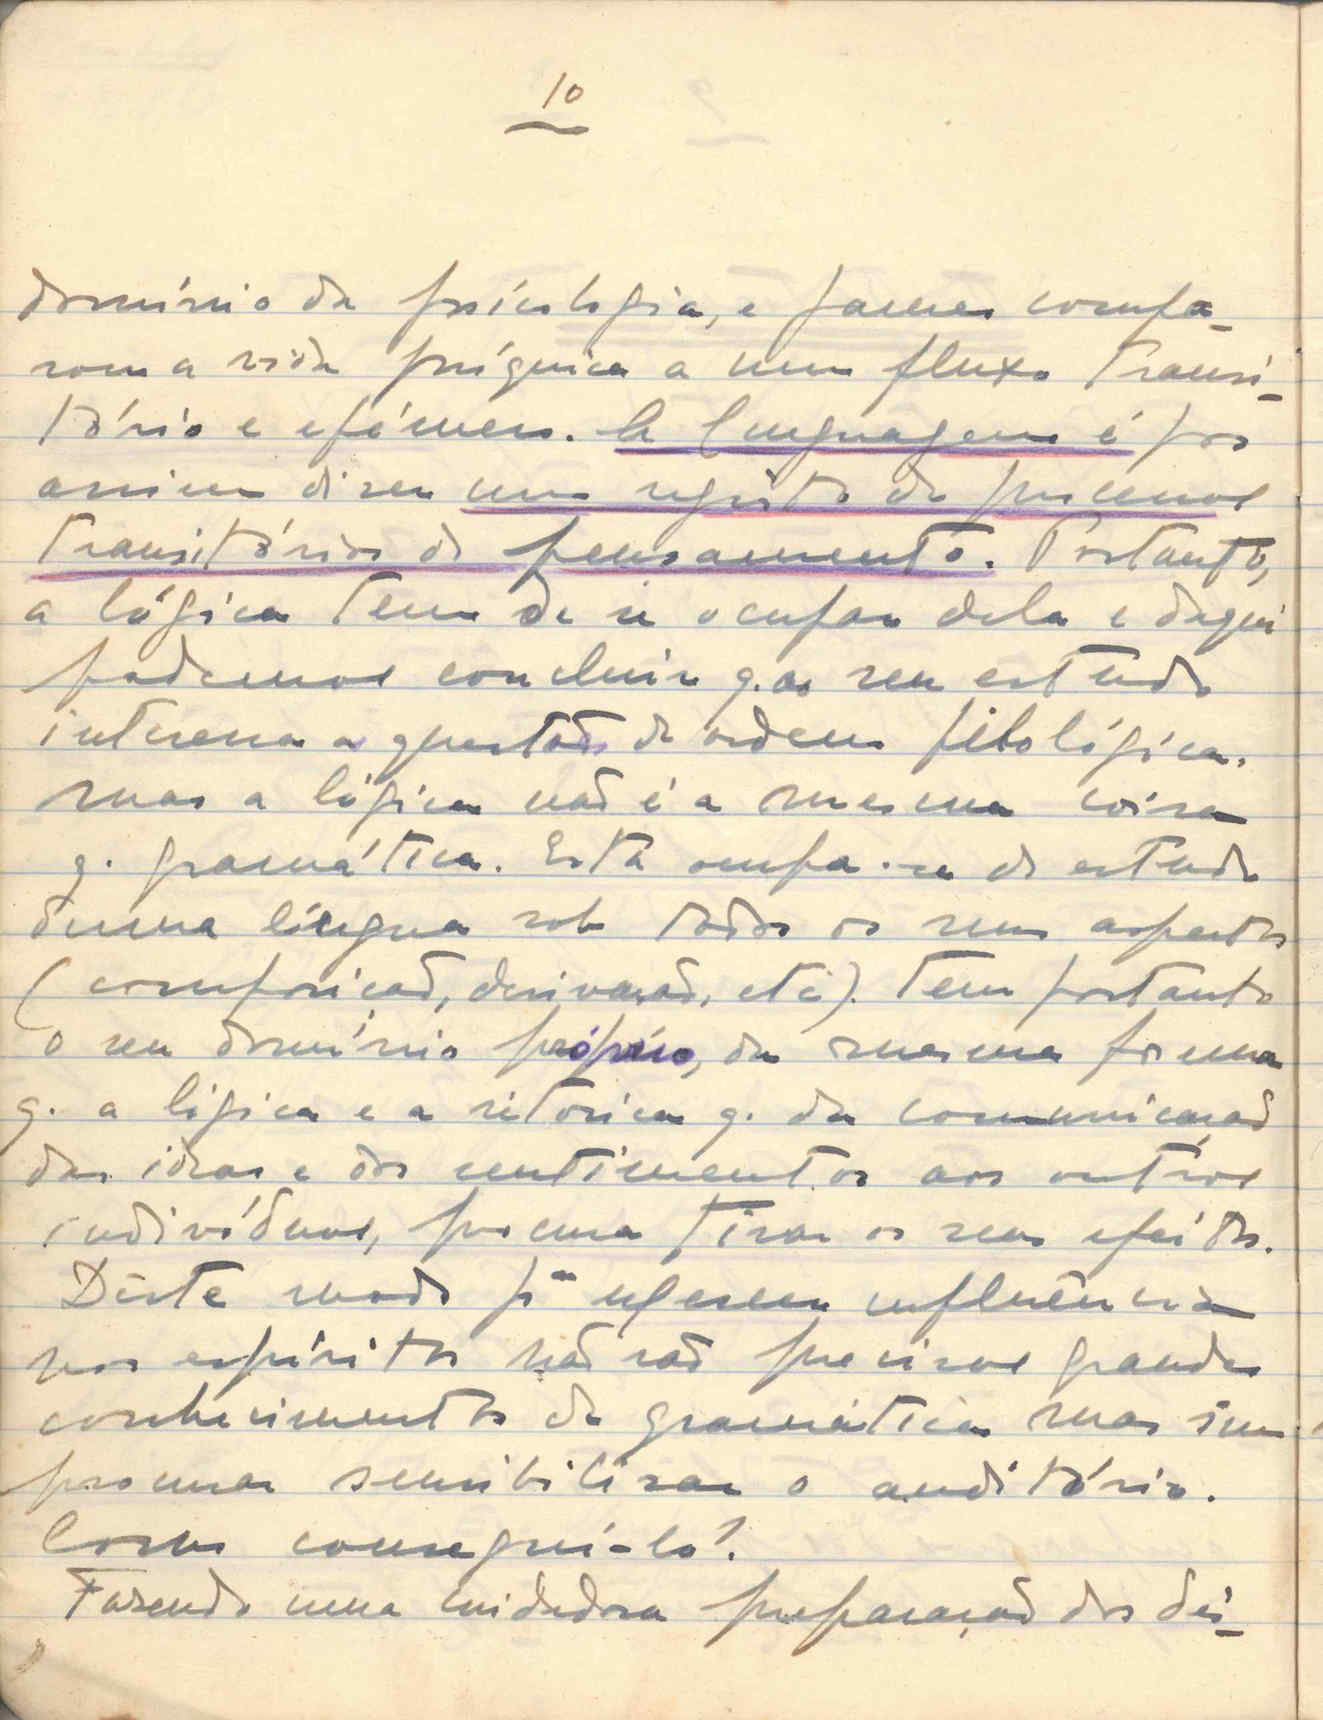 10
domínio da psicologia, e James compa-
rou a vida psíquica a um fluxo transi-
tório e efémero. A linguagem é por
assim dizer um registo de processos
transitórios do pensamento. Portanto,
a lógica tem de se ocupar dela e daqui
podemos concluir q. ao seu estudo
interessa a questão de ordem filológica.
mas a lógica não é a mesma coisa
q. gramática. Esta ocupa-se do estudo
duma língua sob todos os seus aspectos
(composição, derivação, etc). Tem portanto
o seu domínio próprio, da mesma forma
q. a lógica e a retórica q. da comunicação
das ideas e dos sentimentos aos outros
indivíduos, procura tirar os seus efeitos.
Dêste modo pª exercer influência
nos espíritos não são precisos grandes
conhecimentos de gramática mas sim
procurar sensibilizar o auditório.
Como conseguí-lo?
Fazendo uma cuidadosa preparação dos dis-